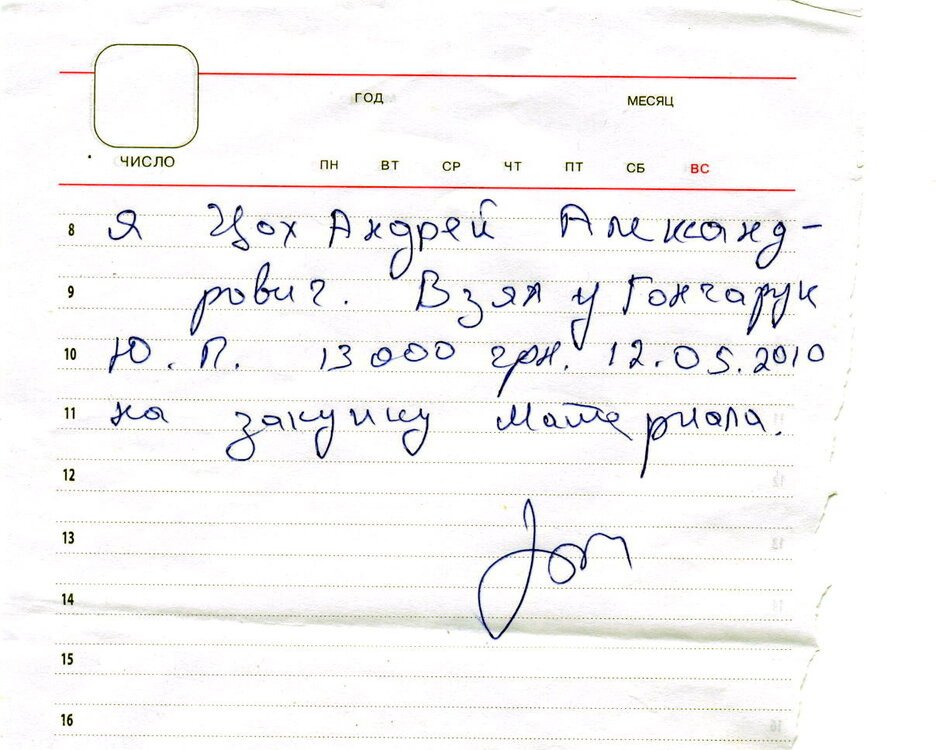 ГОД МЕСЯЦ
ЧИСЛО ПН ВТ СР ЧТ ПТ СБ ВС
8 Я Цох Андрей Александ-
9 рович. Взял у Гончарук
10 Ю. П. 13000 грн. 12.05.2010
11 на закупку материала.
12
13
14
15
16